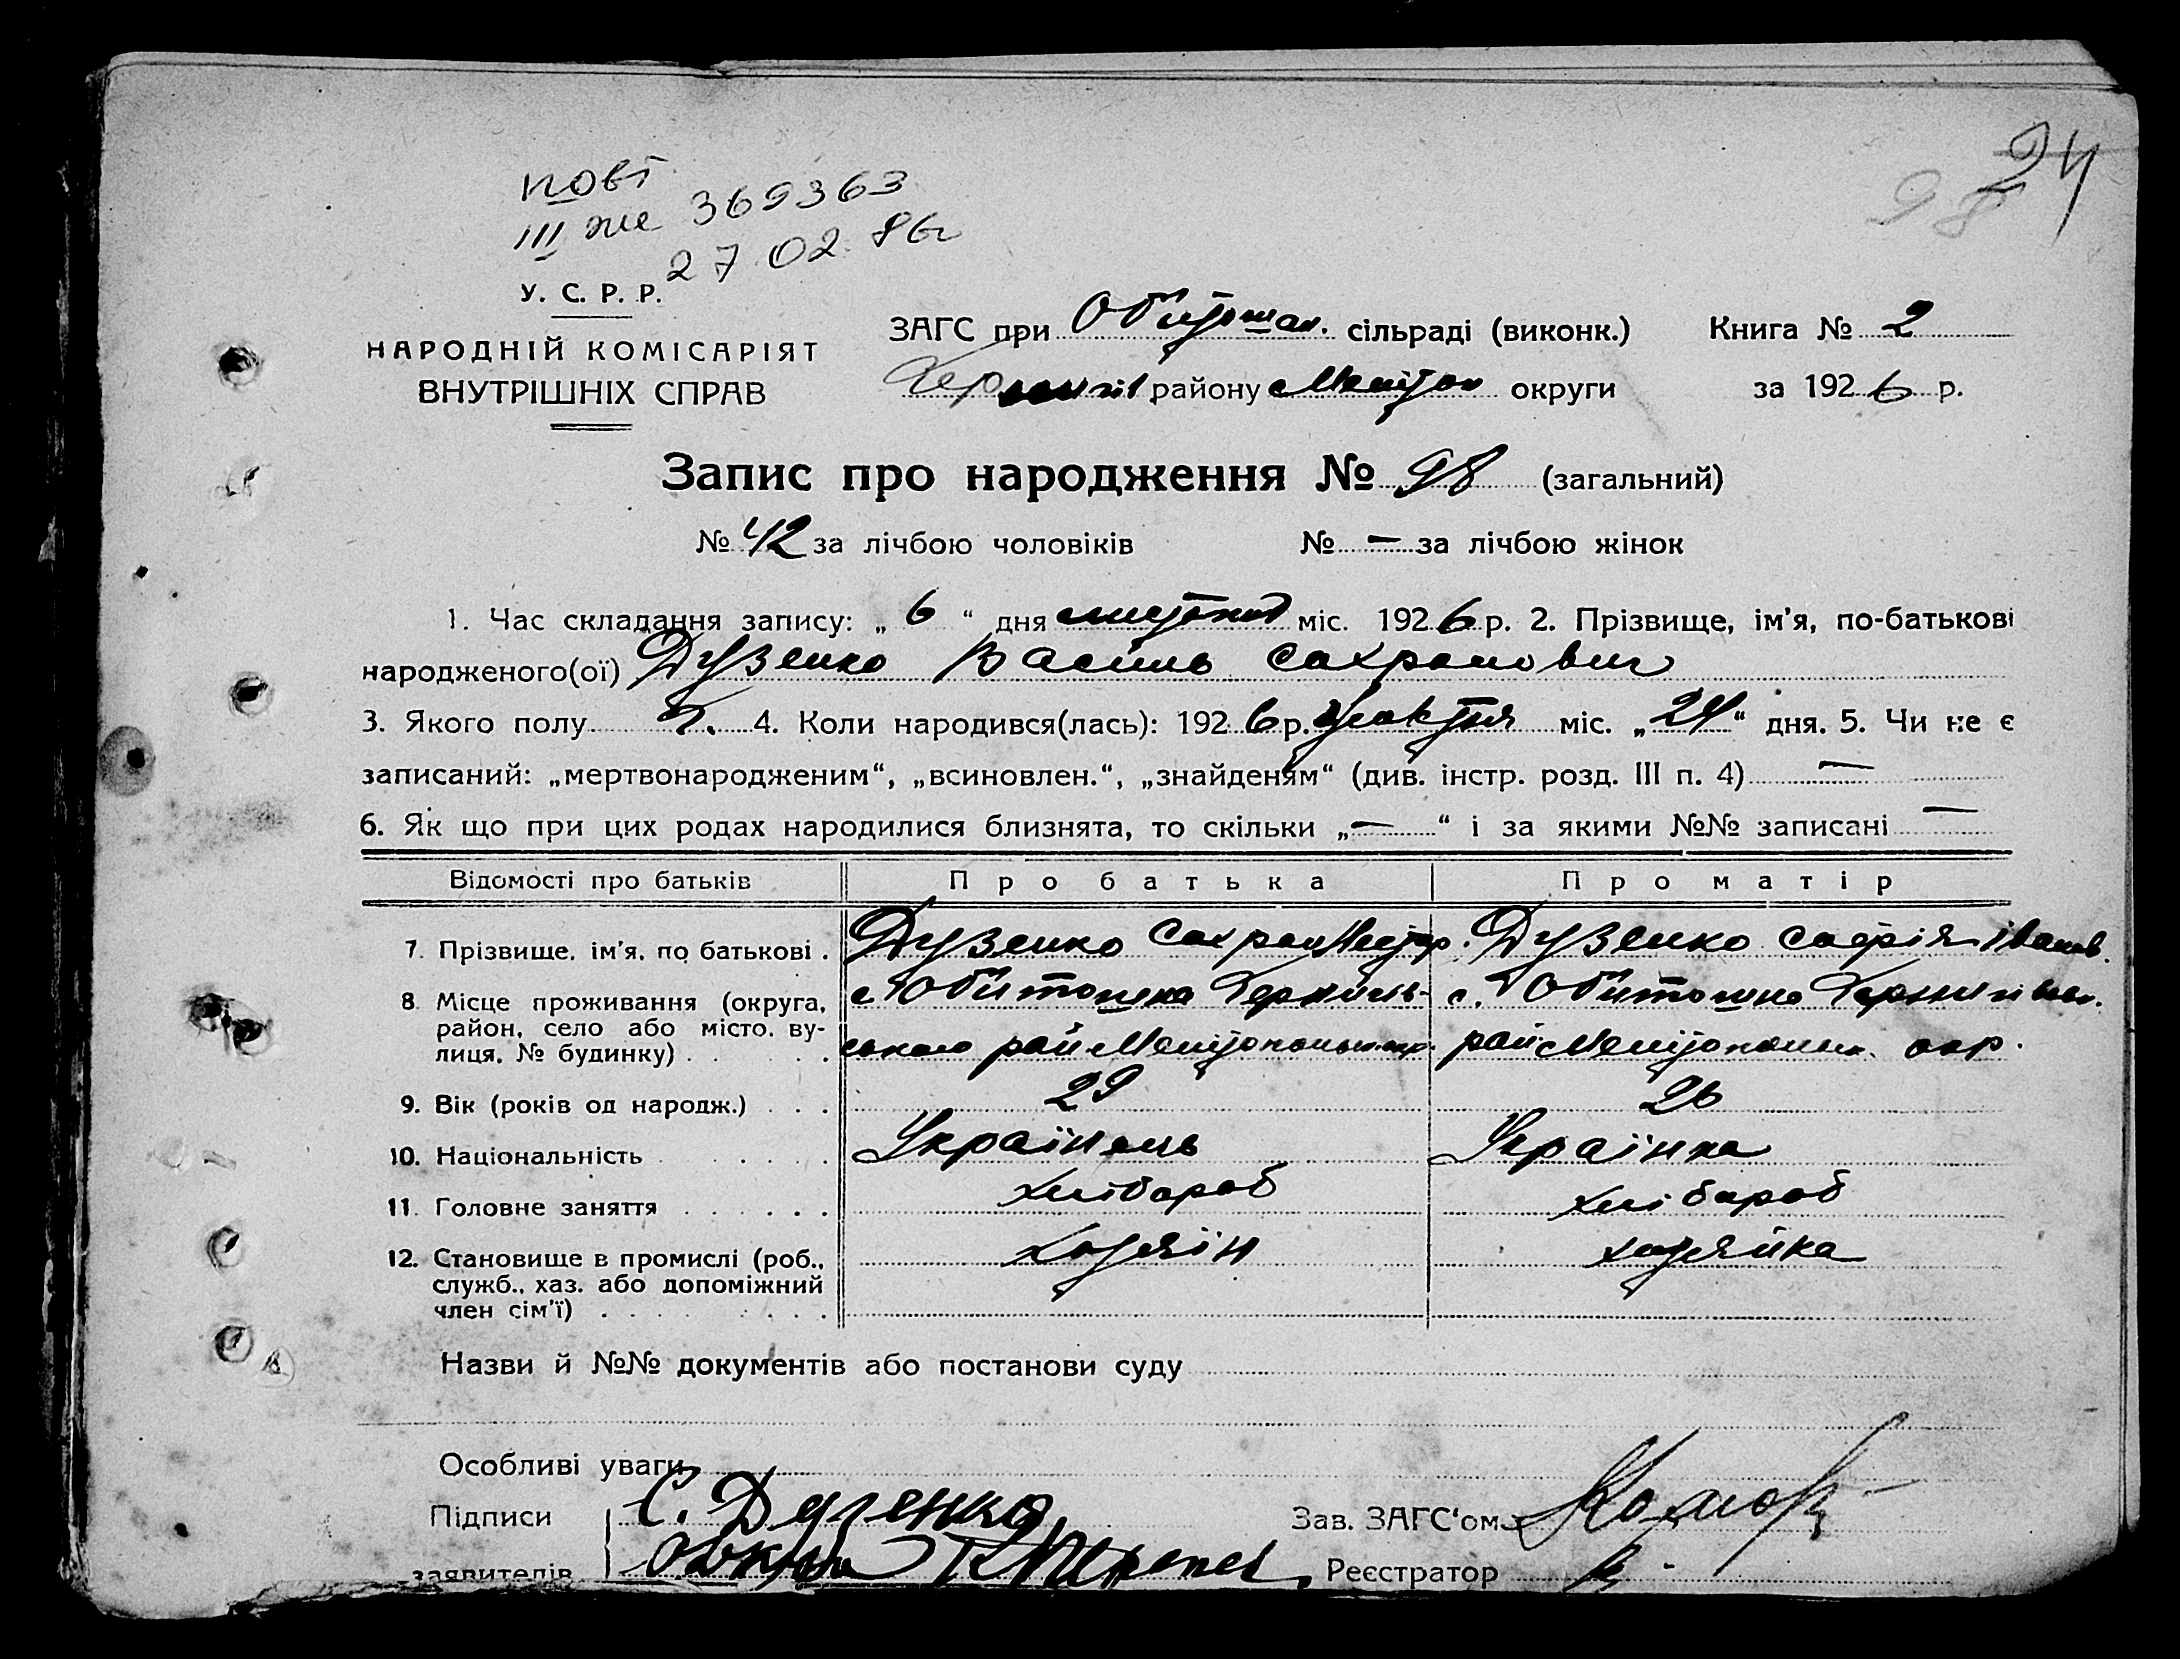 24
98
повт
III же 369363
27 02 86г
У. С. Р. Р.
НАРОДНІЙ КОМІСАРІЯТ
ВНУТРІШНІХ СПРАВ
ЗАГС при сільраді (виконк.) Книга № 2
району округи за 1926 р.
Запис про народження № 98 (загальний)
№ 42 за лічбою чоловіків № — за лічбою жінок
1. Час складання запису: „ 6 “ дня листопад міс. 1926 р. 2. Прізвище, ім'я, по-батькові
народженого(ої) Дузенко Василь Сахронович
3. Якого полу ч. 4. Коли народився(лась): 1926 р. жовтня міс. „ 24 “ дня. 5. Чи не є
записаний: „мертвонародженим“, „всиновлен.“, „знайденям“ (див. інстр. розд. III п. 4) —
6. Як що при цих родах народилися близнята, то скільки „ — “ і за якими №№ записані —
Відомості про батьків Про батька Про матір
7. Прізвище, ім'я, по батькові . Дузенко Сахрон Нестор. Дузенко Софія Іванов.
8 Місце проживання (округа, район, село або місто, ву- лиця, № будинку) . . . с Обиточна Чернигів- ського рай Мелітопольск. окр. с. Обиточна Чернигівськ. рай Мелітопольк. окр.
9. Вік (років од народж.) . . . 29 26
10. Національність . . . . . Українець Українка
11. Головне заняття . . . . . . Хлібороб хлібороб
12. Становище в промислі (роб., служб., хаз. або допоміжний член сім'ї) . . . . . . Хозяїн хозяйка
Назви й №№ документів або постанови суду
Особливі уваги
Підписи С. Дузенко Зав. ЗАГС'ом
заявителів Реєстратор